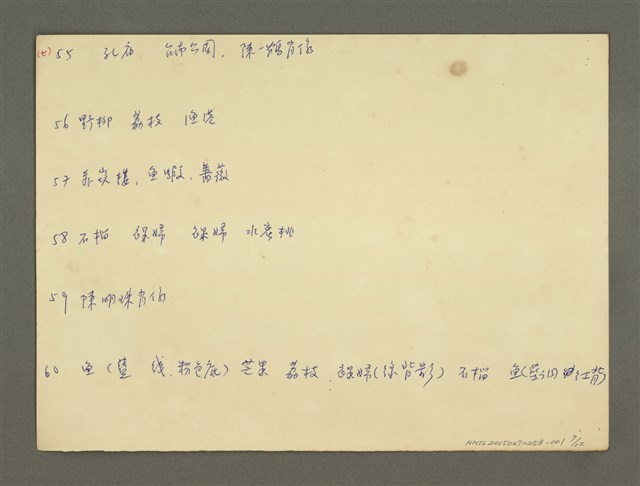 (七) 55 孔廟 台南公園. 陳一鶴肖像
56 野柳 荔枝 漁港
57 赤崁樓. 魚蝦. 薔薇
58 石榴 裸婦 裸婦 水蜜桃
59 陳明珠肖像
60 魚(藍 线.粉色底) 芒果 荔枝 裸婦(綠背影) 石榴 魚(
NMTL20150270258-001 7/12